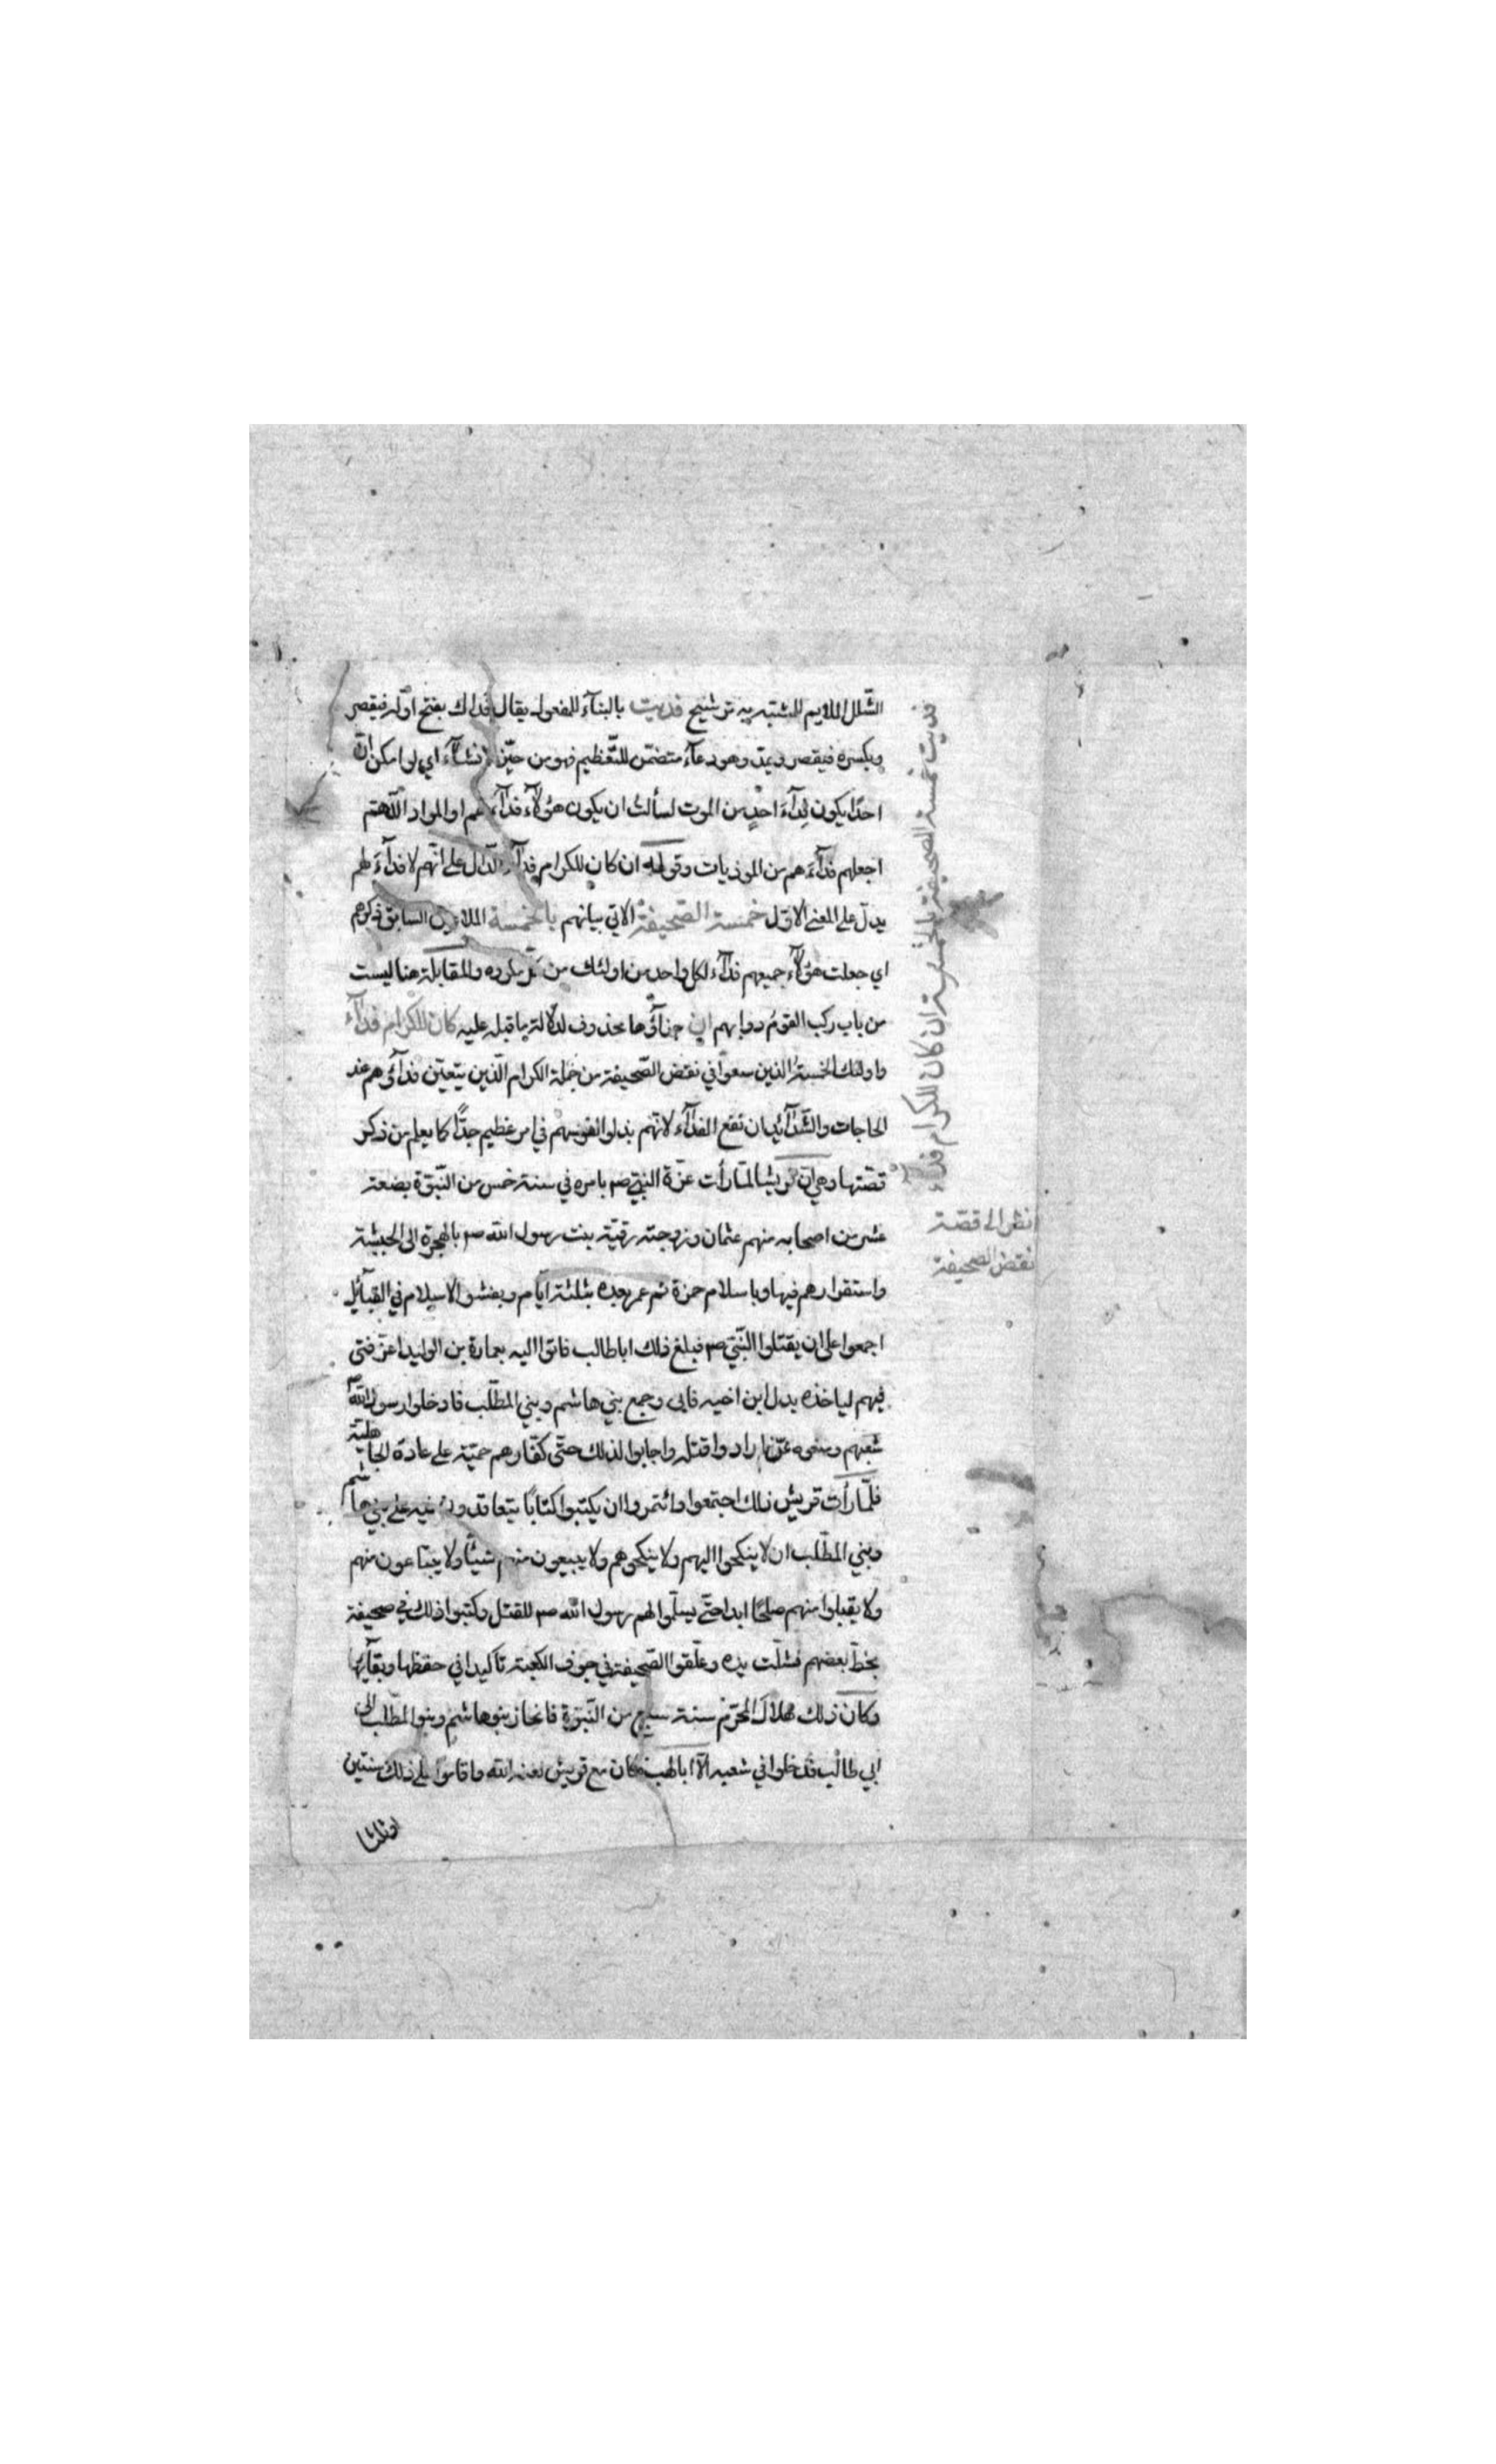 الشّلل الملايم للمشتبه به ترشيح فديت بالبنآء للمفعول يقال فداك بفتح اوّله فيقصر
وبكسره فيقصر ويمدّ وهو دعآء متضمّن للتّعظيم فهو من حيّز الانشآء اي لو امكن انّ
احدًا يكون فِدآءَ احدٍ من الموت لسألتُ ان يكون هؤلآء فدآء لهم او المراد اللّهمّ
اجعلهم فدآءَهم من الموذيات وقوله ان كان للكرام فدآء الدّال على انّهم لا فدآءَ لهم
يدلّ على المعنى الاوّل خمسة الصّحيفة الاتي بيانهم بالخمسة الملاعين السابق ذكرهم
اي جعلت هؤلآء جميعهم فدآء لكل واحد من اولئك من كلّ مكروه والمقابلة هنا ليست
من باب ركب القومُ دوابهم ان جزآؤها محذوف لدلالة ما قبله عليه كان للكرام فدآء
واولئك الخمسة الذين سعوا في نقض الصّحيفة من جملة الكرام الّذين يتعيّن فدآؤهم عند
الحاجات والشّدآئد ان نفع الفدآء لانّهم بذلوا نفوسهم في امر عظيم جدًّا كما يعلم من ذكر
قصّتها وهي انّ قريشا لمّا رأت عزّة النبيّ صم بامره في سنة خمس من النّبوّة بضعة
عشر من اصحابه منهم عثمان وزوجته رقيّة بنت رسول الله صم بالهجرة الى الحبشة
واستقرارهم فيها وباسلام حمزة ثم عمر بعده بثلثة ايّام وبفشو الاسلام في القبآئل
اجمعوا على ان يقتلوا النّبيّ صم فبلغ ذلك ابا طالب فاتوا اليه بعمارة بن الوليد اعزّ فتى
فيهم لياخذه بدل ابن اخيه فابى وجمع بني هاشم وبني المطّلب فادخلوا رسول الله صم
شعبهم ومنعوه عمّن اراد واقتله واجابوا لذلك حتّى كفّارهم حميّة على عادة الجاهلية
فلمّا رأت قريش ذلك اجتمعوا وائتمروا ان يكتبوا كتابًا يتعاقدون فيه على بني هاشم
وبني المطّلب ان لا ينكحوا اليهم ولا ينكحوهم ولا يبيعون منهم شيئًا ولا يبتاعون منهم
ولا يقبلوا منهم صلحًا ابدا حتّى يسلّموا لهم رسول الله صم للقتل وكتبوا ذلك في صحيفة
بخطّ بعضهم فشلّت يده وعلّقوا الصّحيفة في جوف الكعبة تاكيدا في حفظها وبقآئها
وكان ذلك هلال المحرّم سنة سبع من النّبوّة فانحاز بنو هاشم وبنو المطّلب الى
ابي طالب فدخلوا في شعبه الّا ابا لهب فكان مع قريش لعنه الله واقاموا على ذلك سنتين
او ثلثا
فديت خمسة الصحيفة بالخمسة ان كان للكرام فداء
انظر الى قصّة
نقض الصحيفة